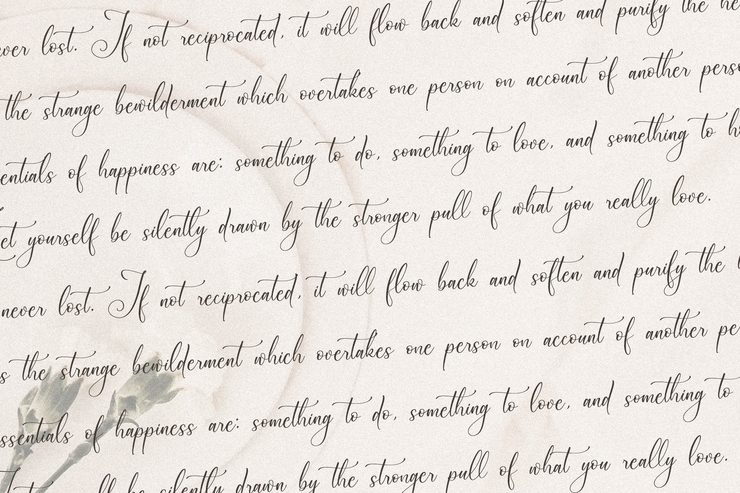 ver lost. If not reciprocated, it will flow back and soften and purify the he
the strange bewilderment which overtakes one person on account of another perso
entials of happiness are: something to do, something to love, and something to h
et yourself be silently drawn by the stronger pull of what you really love.
never lost. If not reciprocated, it will flow back and soften and purify the
s the strange bewilderment which overtakes one person on account of another pe
ssentials of happiness are: something to do, something to love, and something to
be silently drawn by the stronger pull of what you really love.